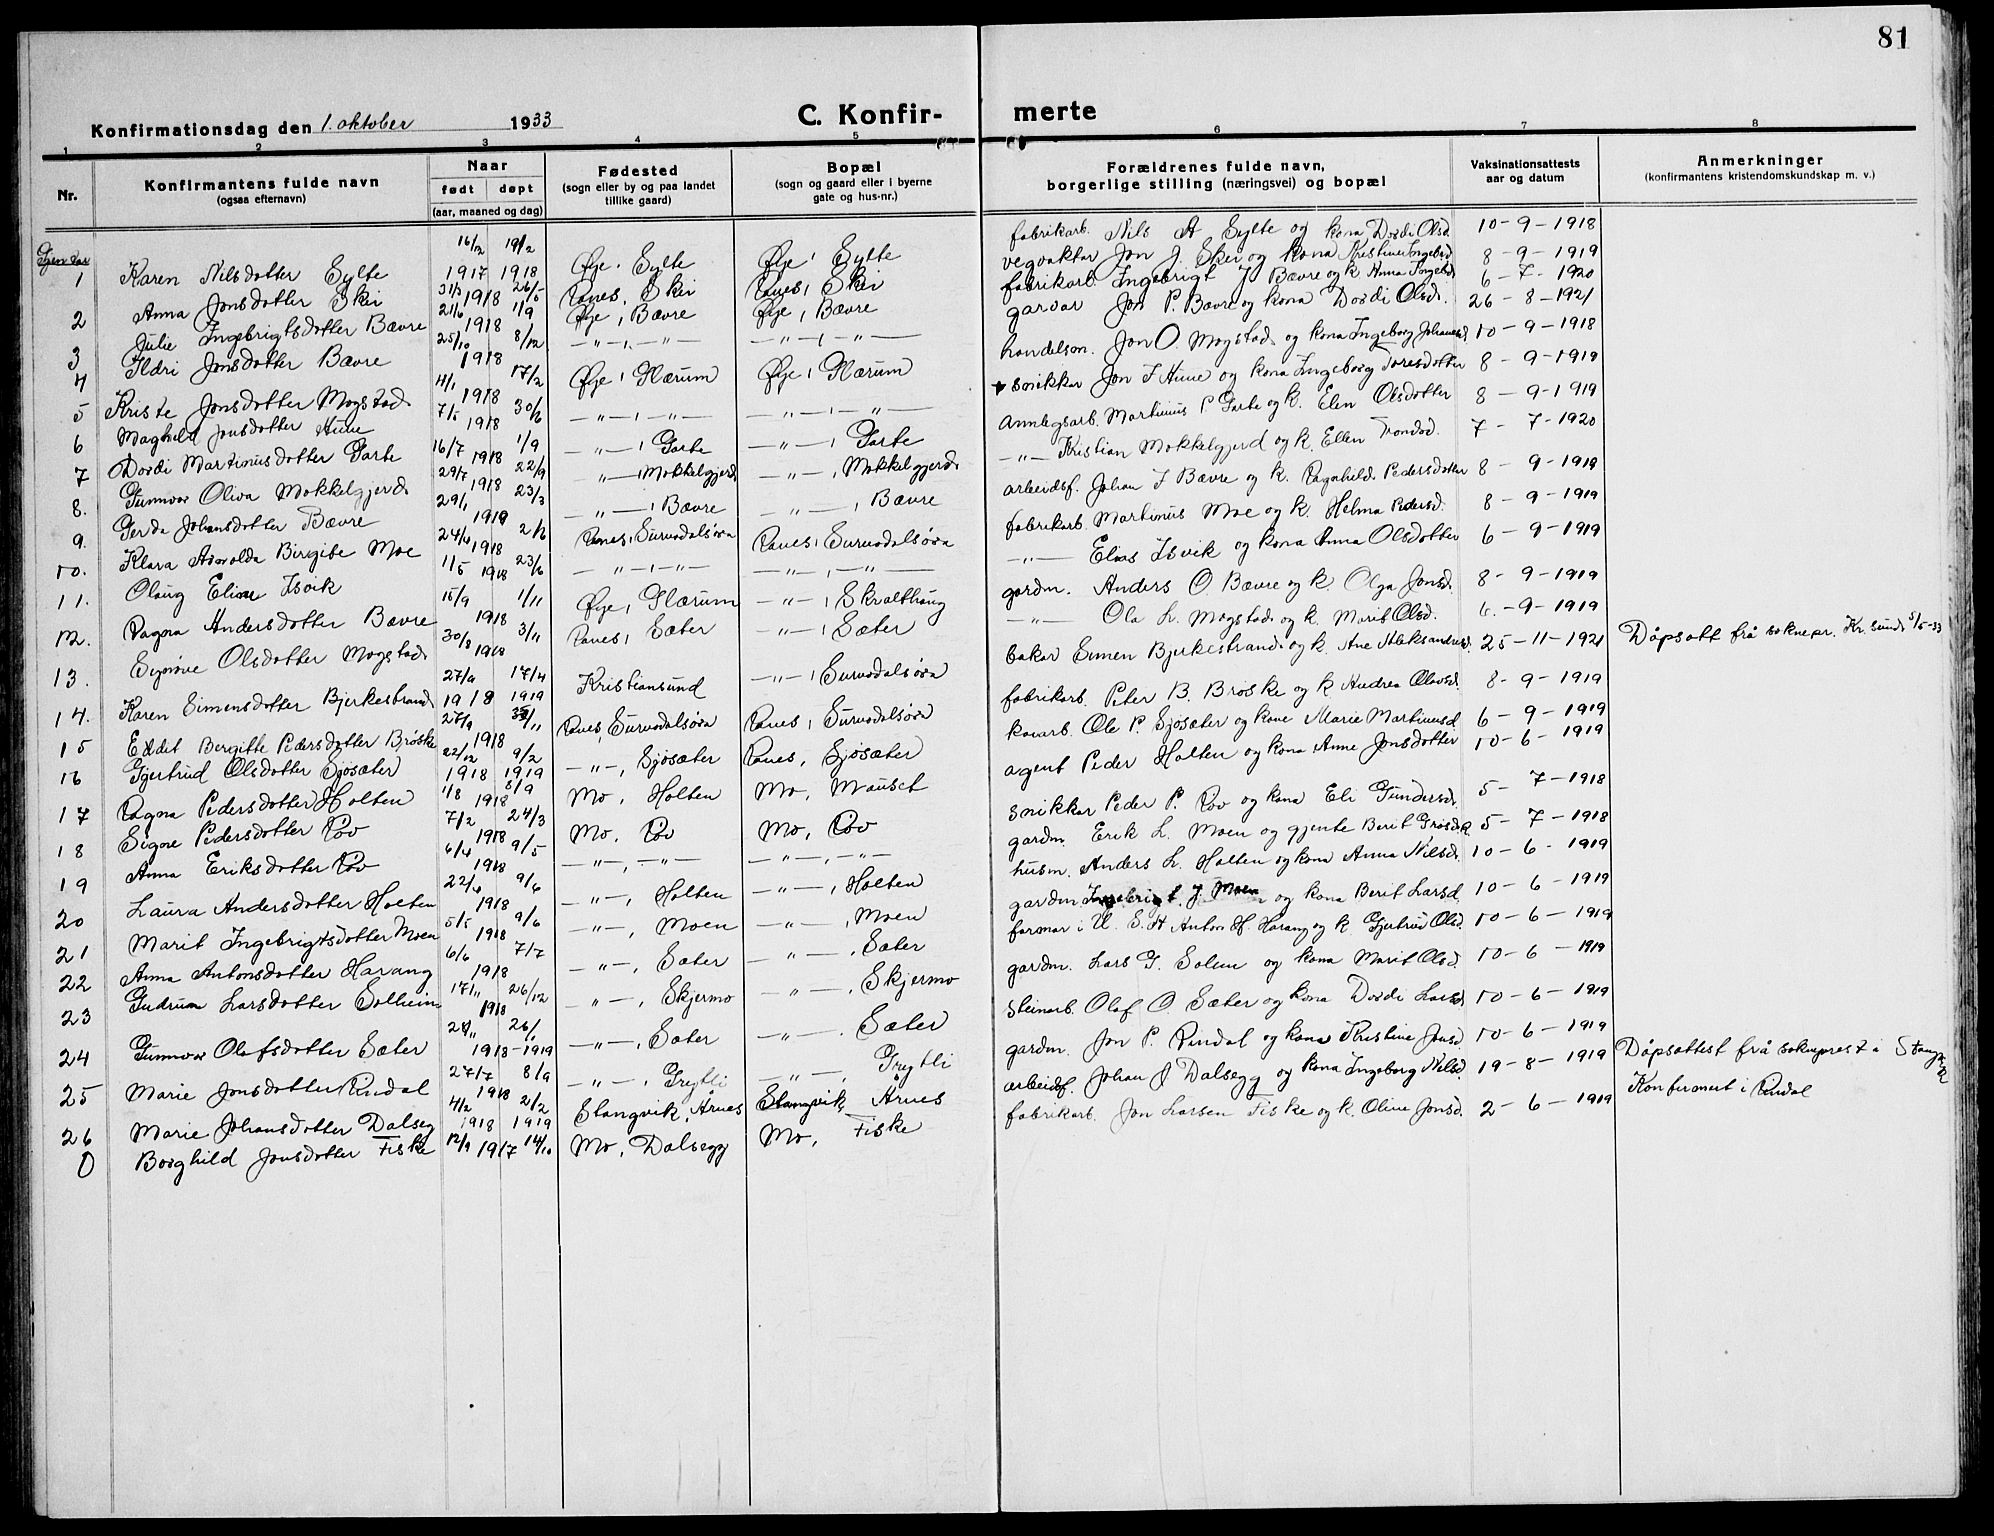 81
Konfirmationsdag den 1. oktober 1933 C. Konfir- merte
1 2 3 4 5 6 7 8
Nr. Konfirmantens fulde navn Naar Fødested Bopæl Forældrenes fulde navn, Vaksinationsattests Anmerkninger
(ogsaa efternavn) født døpt (sogn eller by og paa landet (sogn og gaard eller i byerne borgerlige stilling (næringsvei) og bopæl aar og datum (konfirmantens kristendomskundskap m. v.)
(aar, maaned og dag) tillike gaard) gate og hus-nr.)
1 Karen Nilsdotter Sylte 16/12 1917 19/2 1918 Øye, Sylte Øye, Sylte fabrikarb. Nils A Sylte og kona Dordi Olsd. 10-9-1918
2 Anna Jonsdotter Skei 31/3 1918 26/5 Ranes, Skei Ranes, Skei vegvaktar Jon J. Skei og kona Kristine Ingebrd 8-9-1919
3 Julie Ingebrigtsdotter Bævre 21/6 1918 1/9 Øye, Bævre Øye, Bævre fabrikarb. Ingebrigt J Bævre og k. Anna Ingebd 6-7-1920
4 Ildri Jonsdotter Bævre 25/10 1918 8/12 -"-, -"- -"-, -"- gardar Jon P. Bævre og kona Dordi Olsd. 26-8-1921
5 Kriste Jonsdotter Mogstad 4/1 1918 17/2 Øye, Glærum Øye, Glærum handelsm. Jon O. Mogstad og kona Ingeborg Johansd 10-9-1918
6 Maghild Jonsdotter Hune 7/5 1918 30/6 -"-, -"- -"-, -"- snikkar Jon T Hune og kona Ingeborg Toresdotter 8-9-1919
7 Dordi Martinusdotter Garte 16/7 1918 1/9 -"-, Garte -"-, Garte anlegsarb. Martinus P Garte og k. Elen Olsdotter 8-9-1919
8. Gunnvor Oliva Mokkelgjerd 29/7 1918 22/9 -"-, Mokkelgjerd -"-, Mokkelgjerd -"- Kristian Mokkelgjerd og k. Ellen Trondsd. 7-7-1920
9. Gerda Johansdotter Bævre 29/1 1919 23/3 -"-, Bævre -"-, Bævre arbeidsf. Johan J Bævre og k. Ragnhild Pedersdotter 8-9-1919
10. Klara Arnolda Birgite Moe 24/4 1918 2/6 Ranes, Surnadalsøra Ranes, Surnadalsøra fabrikarb. Martinus Moe og k. Helma Pedersd. 8-9-1919
11. Olaug Eline Isvik 11/5 1918 23/6 -"-, -"- -"-, -"- -"- Elias Isvik og kona Anna Olsdotter 6-9-1919
12. Ragna Andersdotter Bævre 15/9 1918 1/11 Øye, Glærum -"-, Skralthaug gardm. Anders O. Bævre og k. Olga Jonsd. 8-9-1919
13. Synnøve Olsdotter Mogstad 30/8 1918 3/11 Ranes, Sæter -"-, Sæter -"- Ola L. Mogstad og k. Marit Olsd. 6-9-1919
14. Karen Simensdotter Bjerkestrand 27/9 1918 17/4 1919 Kristiansund -"-, Surnadalsøra bakar Simen Bjerkestrand og k. Ane Aleksandersd. 25-11-1921 Dåpsatt frå soknepr. Kr.sund 5/5-33
15 Eddit Bergitte Pedersdotter Brøske 27/9 1918 /11 Ranes, Surnadalsøra Ranes, Surnadalsøra fabrikarb. Peter B. Brøske og k Andrea Olavsd. 8-9-1919
16 Gjertrud Olsdotter Sjøsæter 22/12 1918 9/2 1919 -"-, Sjøsæter Ranes, Sjøsæter Ole P. Sjøsæter og kone Marie Martinusd 6-9-1919
17 Ragna Pedersdotter Holten 1/8 1918 8/9 Mo, Holten Mo, Mauset agent Peder Holten og kona Anne Jonsdotter 10-6-1919
18 Signe Pedersdotter Rov 7/2 1918 24/3 Mo, Rov Mo, Rov snikkar Peder P. Rov og kona Eli Gundersd. 5-7-1918
19 Anna Eriksdotter Rov 6/4 1918 9/5 -"-, -"- -"-, -"- gardm. Erik L. Moen og gjente Berit 5-7-1918
20 Laura Andersdotter Holten 22/4 1918 9/6 -"-, Holten -"-, Holten husm. Anders L. Holten og kona Anna Nilsd. 10-6-1919
21 Marit Ingebrigtsdotter Moen 5/5 1918 9/6 -"-, Moen -"-, Moen gardm Ingebrigt J Moen og kona Berit Larsd. 10-6-1919
22 Anna Antonsdotter Harang 6/6 1918 7/7 -"-, Sæter -"-, Sæter farmar i U. S. A Anton H. Harang og k Gjertrud Olsd. 10-6-1919
23 Gudrun Larsdotter Solheim 17/11 1918 26/12 -"-, Skjermo -"-, Skjermo gardm. Lars G. Solem og kona Marit Olsd. 10-6-1919
24 Gunnvor Olafsdotter Sæter 24/11 1918 26/1 1919 -"-, Sæter -"-, Sæter steinarb. Olaf O. Sæter og kona Dordi Larsd 10-6-1919
25 Marie Jonsdotter Rindal 27/7 1918 8/9 -"-, Grytli -"-, Grytli gardm. Jon P. Rindal og kona Kristine Jonsd. 10-6-1919
26 Marie Johansdotter Dalsegg 4/2 1918 2/2 1919 Stangvik, Årnes Stangvik, Årnes arbeidsf. Johan J Dalsegg og kona Ingeborg Nilsd. 19-8-1919 Dåpsattest frå sokneprest i Stangvik
0 Borghild Jonsdotter Fiske 12/9 1917 14/10 Mo, Dalsegg Mo, Fiske fabrikarb. Jon Larsen Fiske og k. Oline Jonsd. 2-6-1919 Konfirmert i Rindal